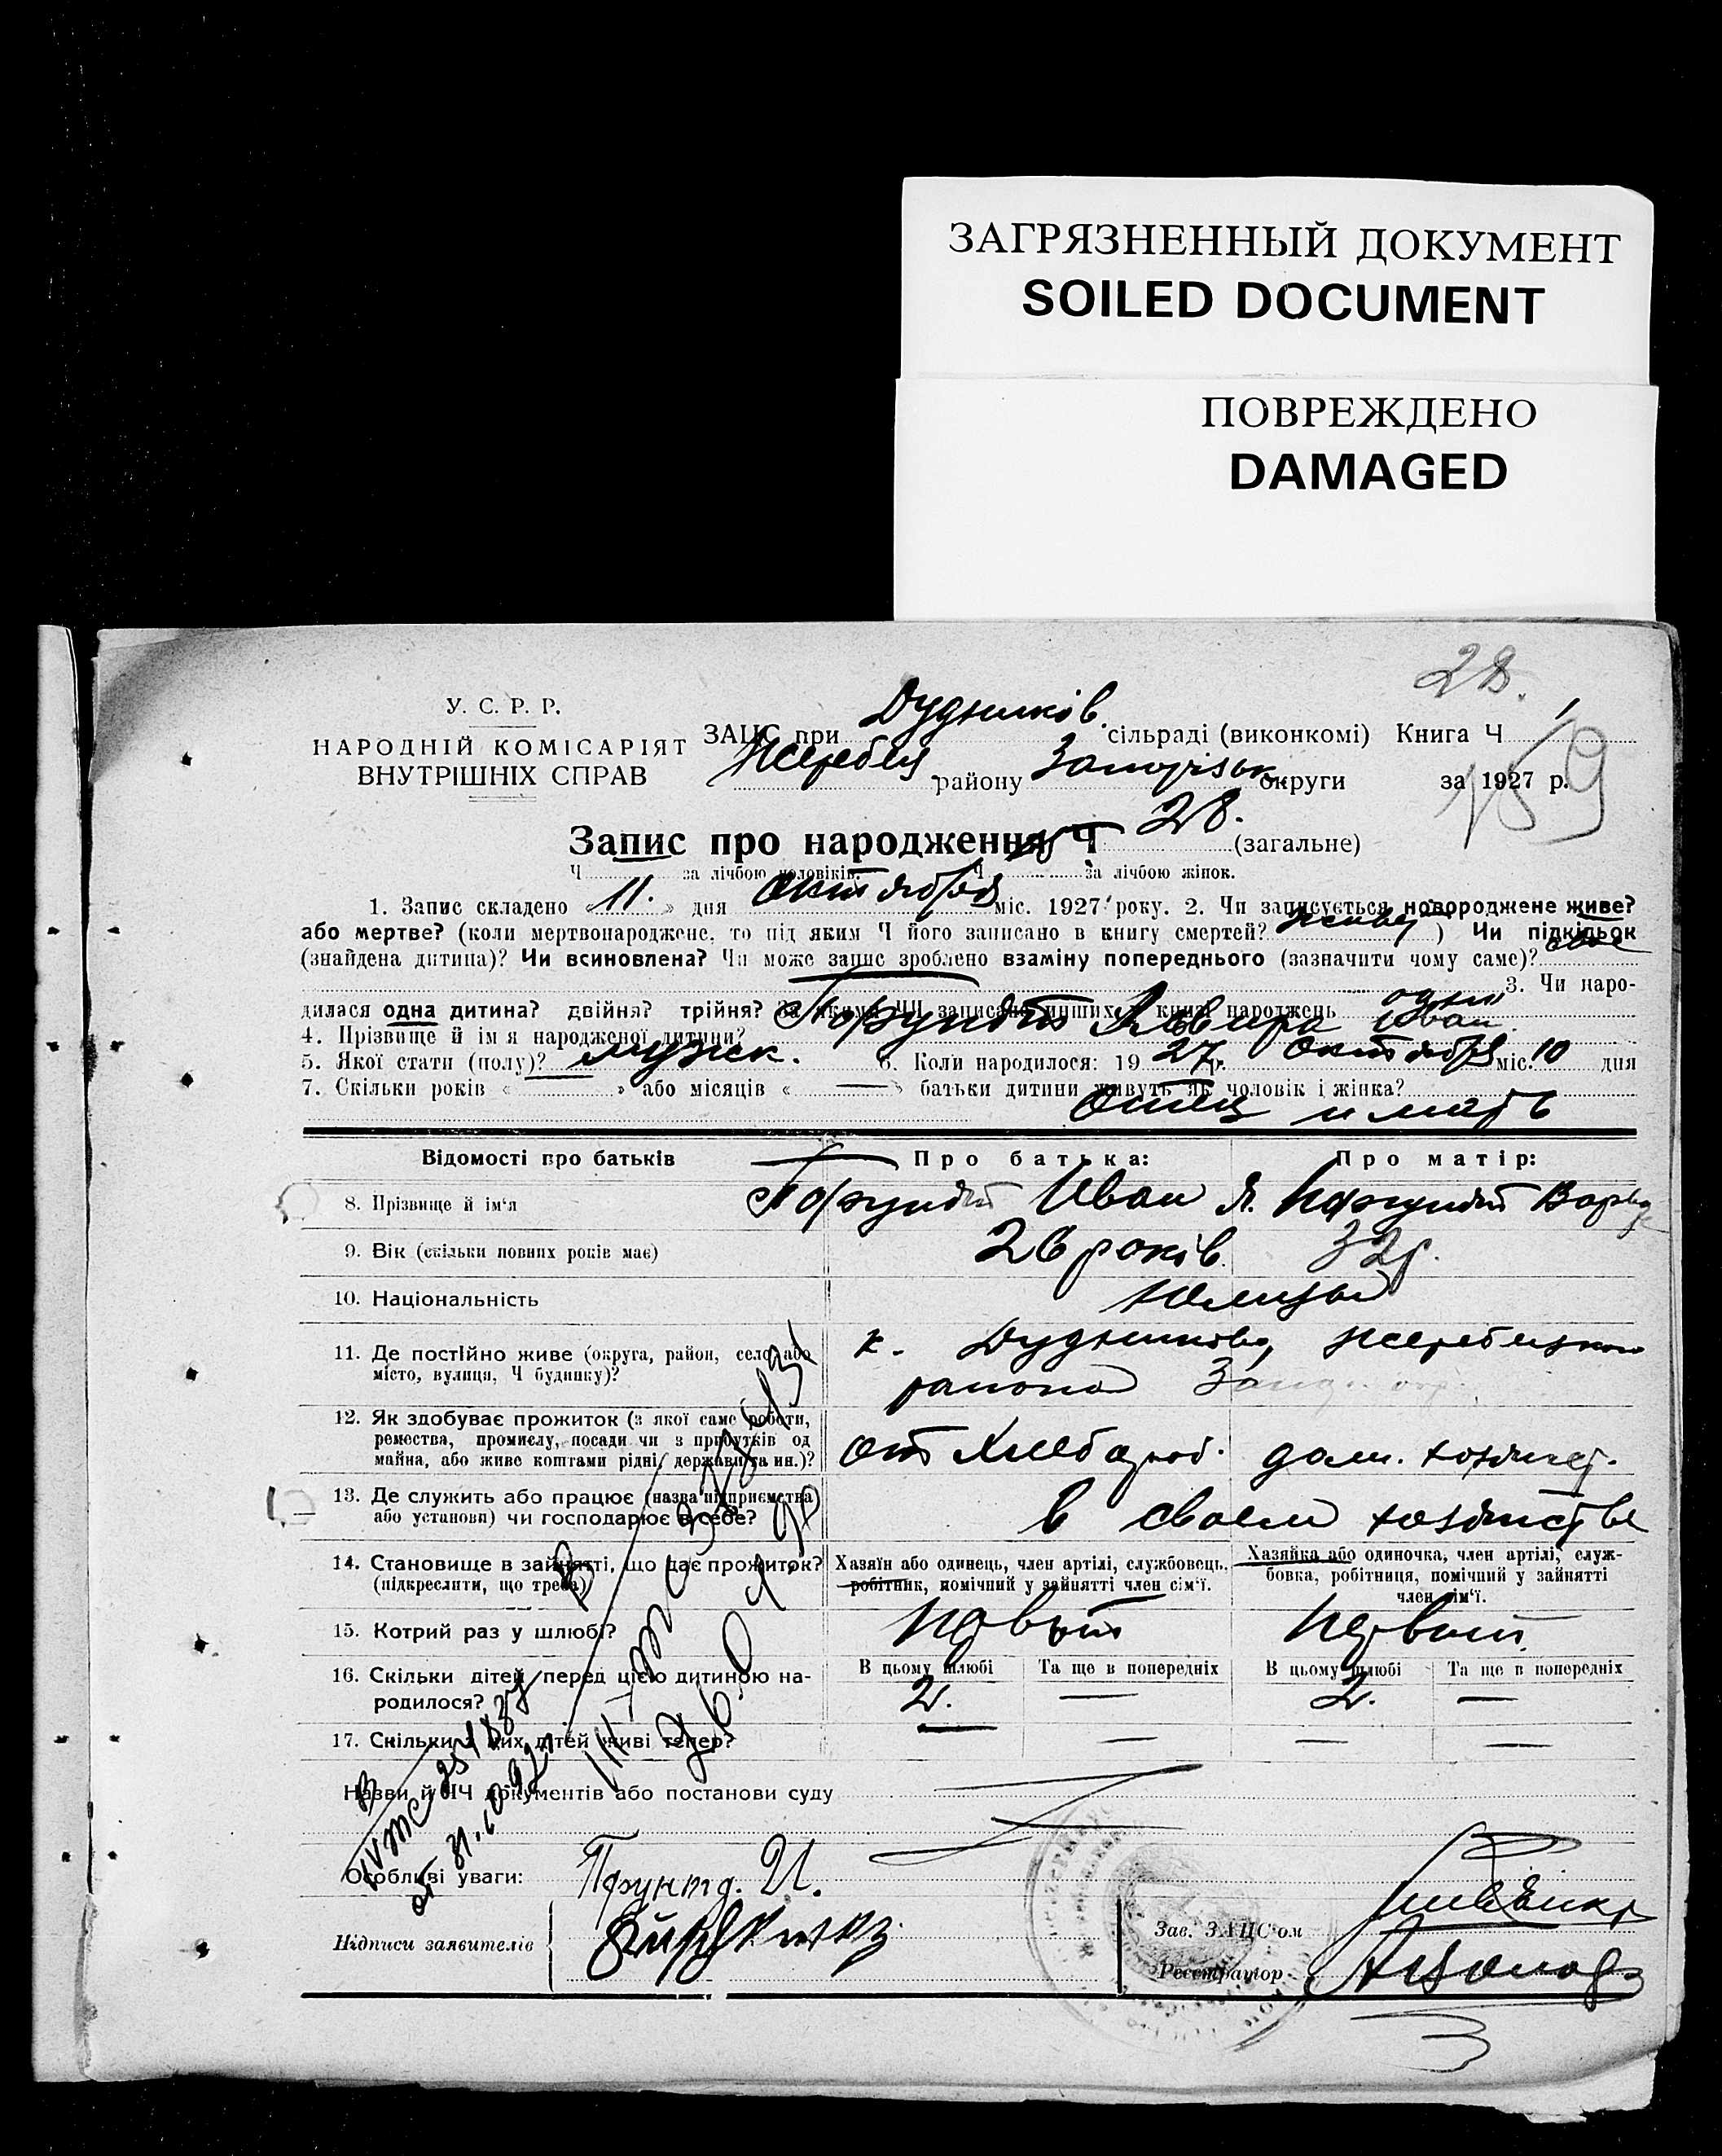 ЗАГРЯЗНЕННЫЙ ДОКУМЕНТ
SOILED DOCUMENT
ПОВРЕЖДЕНО
DAMAGED
28.
У. С. Р. Р.
НАРОДНІЙ КОМІСАРІЯТ
ВНУТРІШНІХ СПРАВ
ЗАЦС при Дудников. сільраді (виконкомі) Книга Ч 1
району округи за 1927 р.
159
Запис про народження Ч 28. (загальне)
Ч за лічбою чоловіків. Ч за лічбою жінок.
1. Запис складено « 11. » дня октября міс. 1927 року. 2. Чи записується новороджене живе?
або мертве? (коли мертвонароджене, то під яким Ч його записано в книгу смертей? ) Чи підкідьок
(знайдена дитина)? Чи всиновлена? Чи може запис зроблено взаміну попереднього (зазначити чому саме)?
3. Чи наро-
дилася одна дитина? двійня? трійня? За якими ЧЧ записано инших в книзі народжень один
4. Прізвище й ім'я народженої дитини? Иван
5. Якої стати (полу)? мужск. 6. Коли народилося: 19 27 р. октября міс. 10 дня
7. Скільки років « » або місяців « — » батьки дитини живуть як чоловік і жінка?
отец и мать
Відомості про батьків Про батька: Про матір:
8. Прізвище й ім'я Иван Я.
9. Вік (скільки повних років має) 26 років. 32 р.
10. Національність
11. Де постійно живе (округа, район, село або
місто, вулиця, Ч будинку)?
к. Дудниково, Жеребецкого
района
12. Як здобуває прожиток (з якої саме роботи,
ремества, промислу, посади чи з прибутків од
майна, або живе коштами рідні, держави та ин.)?
от Хлебороб. дом. хозяйст.
13. Де служить або працює (назва підприємства
або установи) чи господарює в себе?
в своем хозяйстве
14. Становище в зайнятті, що дає прожиток?
(підкреслити, що треба)
Хазяїн або одинець, член артілі, службовець,
робітник, помічний у зайнятті член сім'ї.
Хазяйка або одиночка, член артілі, служ-
бовка, робітниця, помічний у зайнятті
член сім'ї.
15. Котрий раз у шлюбі? первый первый
16. Скільки дітей перед цією дитиною на-
родилося?
В цьому шлюбі Та ще в попередніх В цьому шлюбі Та ще в попередніх
2. — 2. —
17. Скільки з них дітей живі тепер? — — — —
Назви й ЧЧ документів або постанови суду
Особливі уваги:
Підписи заявителів
Зав. ЗАЦС'ом
Реєстратор